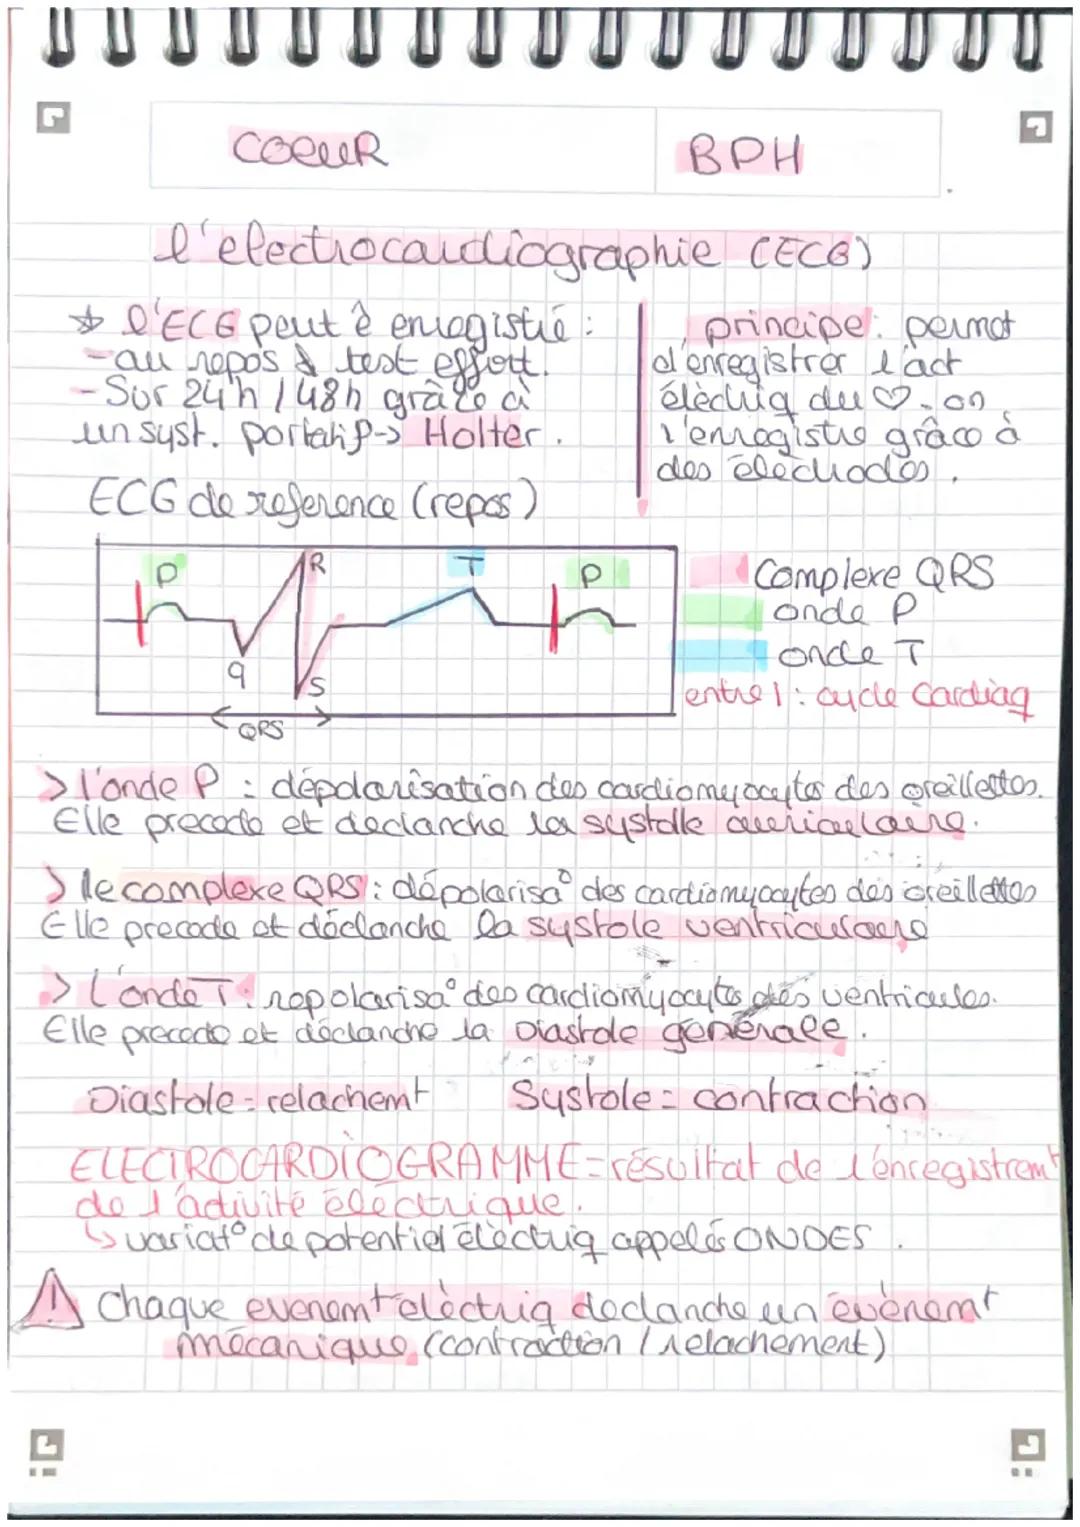 COEUR
BPH
l'electrocardiographie (ECG)
☆ l'ECG peut ê enregistré :
- au repos & test effort.
- Sur 24h / 48h grâce à
un syst. portatif -> Holter.
principe : permet
d'enregistrer l'act
éléctriq du ♡. on
l'enregistre grâce à
des électrodes.
ECG de reference (repos)
P
R
T
P
q
S
QRS
Complexe QRS
onde P
onde T
entre | : cycle Cardiaq
> l'onde P : dépolarisation des cardiomyocytes des oreillettes.
Elle precede et declanche la systolle auriculaire.
> le complexe QRS : dépolarisa° des cardiomyocytes des oreillettes
Elle precede et déclanche la systole ventriculaere
> L'onde T : repolarisa° des cardiomyocytes des ventricules.
Elle precede et déclanche la Diastole generale.
Diastole = relachemt
Systole = contraction
ELECTROCARDIOGRAMME = résultat de l'enregistremt
de l'activité électrique.
↳ variat° de potentiel éléctriq appelés ONDES.
! Chaque evenemt eléctriq declanche un evènemt
mécanique (contraction / relachement)